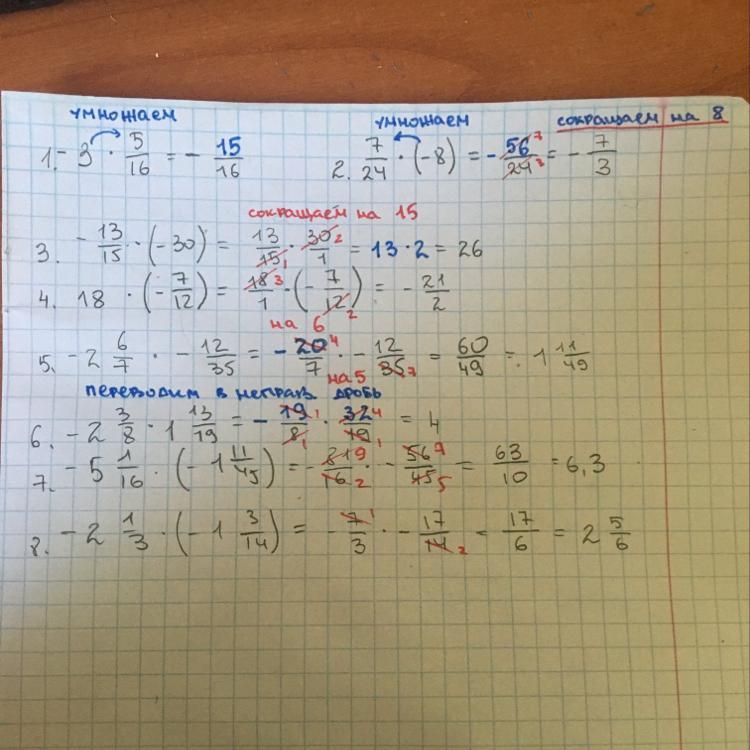 умножаем умножаем сокращаем на 8
1. -3 · 5/16 = - 15/16 2. 7/24 · (-8) = - 56/24 7 3 = - 7/3
сокращаем на 15
3. - 13/15 · (-30) = 13/15 1 · 30/1 2 = 13 · 2 = 26
4. 18 · (- 7/12) = 18/1 3 · (- 7/12 2) = - 21/2
на 6
5. -2 6/7 · - 12/35 = - 20/7 4 · - 12/35 7 = 60/49 = 1 11/49
на 5
переводим в неправ. дробь
6. -2 3/8 · 1 13/19 = - 19/8 1 1 · 32/19 4 1 = 4
7. -5 1/16 · (-1 11/45) = - 81/16 9 2 · - 56/45 7 5 = 63/10 = 6,3
8. -2 1/3 · (-1 3/14) = - 7/3 1 · - 17/14 2 = 17/6 = 2 5/6